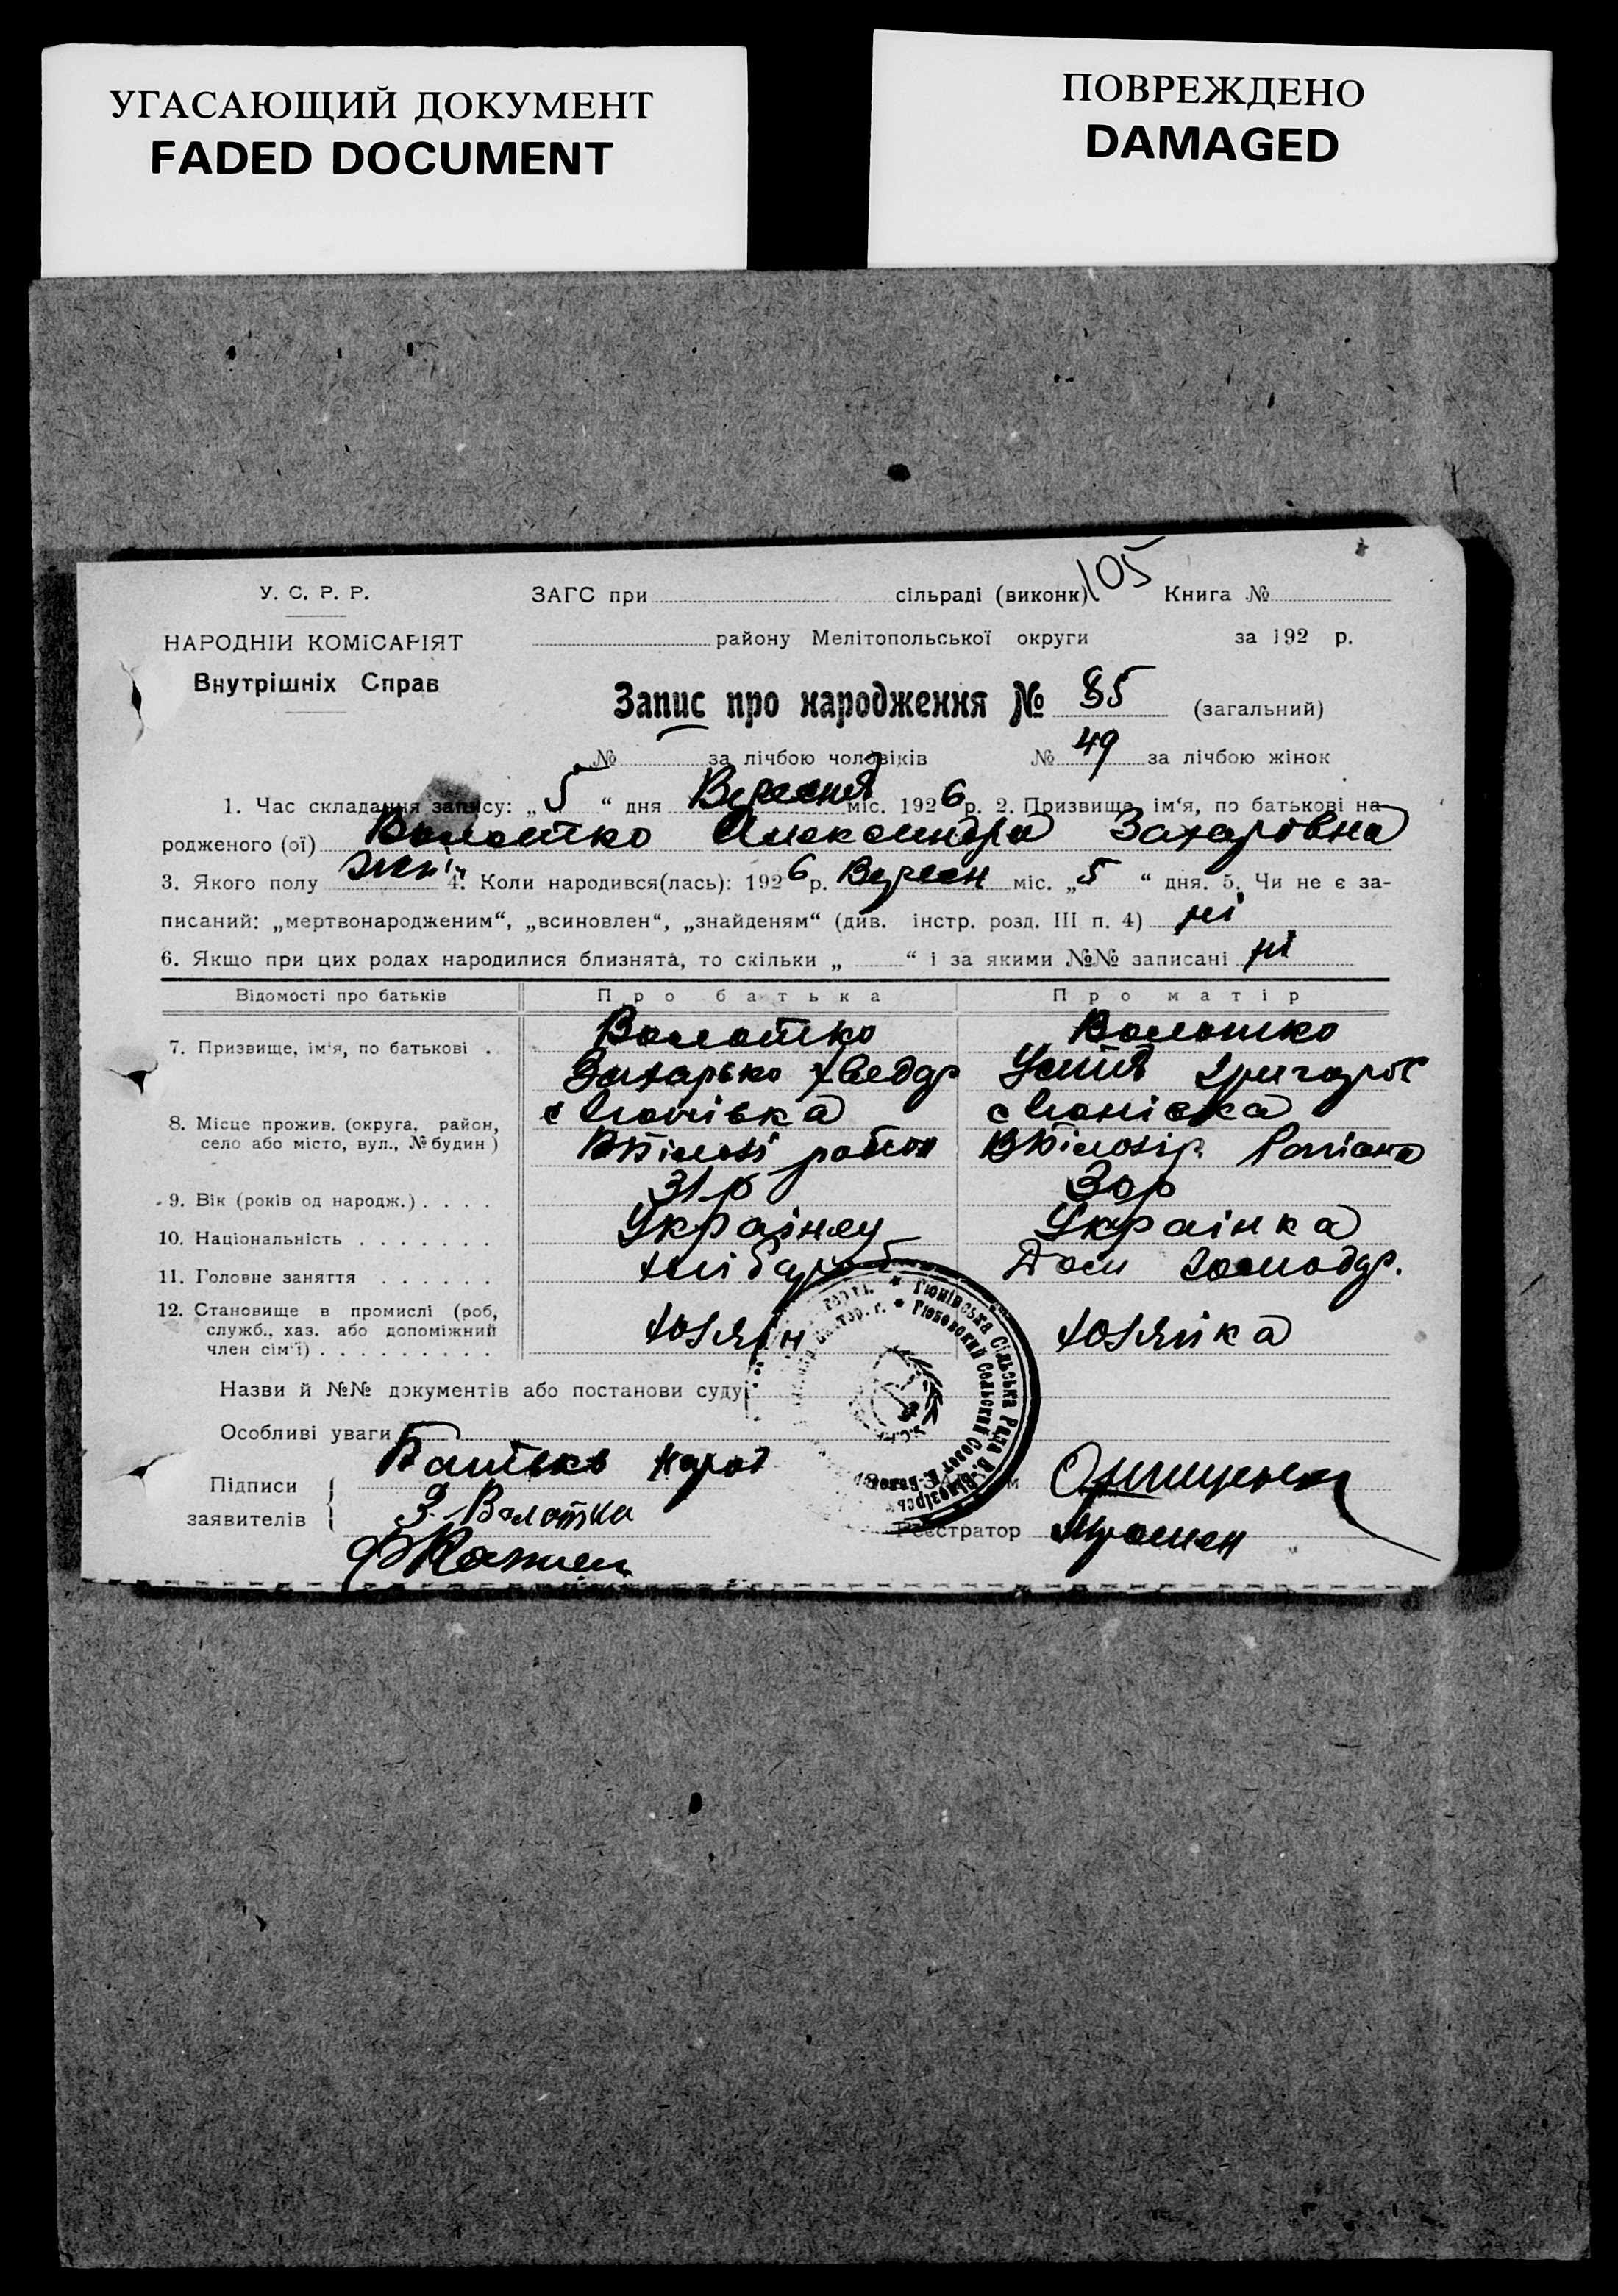 УГАСАЮЩИЙ ДОКУМЕНТ
FADED DOCUMENT
ПОВРЕЖДЕНО
DAMAGED
У. С. Р. Р.
НАРОДНІЙ КОМІСАРІЯТ
Внутрішніх Справ
ЗАГС при сільраді (виконк) 105 Книга №
району Мелітопольської округи за 192 р.
Запис про народження № 85 (загальний)
№ за лічбою чоловіків № 49 за лічбою жінок
1. Час складання запису: „ 5 “ дня Вересня міс. 1926 р. 2. Призвище, ім‘я, по батькові на-
родженого (ої) Волошко Александра Захаровна
3. Якого полу жін 4. Коли народився(лась): 1926 р. Вересн міс. „ 5 “ дня. 5. Чи не є за-
писаний: „мертвонародженим“, „всиновлен“, „знайденям“ (див. інстр. розд. III п. 4) ні
6. Якщо при цих родах народилися близнята, то скільки „ “ і за якими №№ записані ні
Відомості про батьків Про батька Про матір
7. Призвище, ім‘я, по батькові . Волошко Волошко
Захарько Хведор Устя Григоров
8. Місце прожив. (округа, район,
село або місто, вул., № будин)
район
9. Вік (років од народж.) . . . . 31 р 30 р
10. Національність . . . . . . . Украінец Украінка
11. Головне заняття . . . . . . хлібороб Дом господар.
12. Становище в промислі (роб,
служб., хаз. або допоміжний
член сім‘ї) . . . . . . . . . хозяін хозяйка
Назви й №№ документів або постанови суду
Особливі уваги
Підписи
заявителів
Батько
З. Волошко
Реєстратор
Гюнівська Сільська Рада
Гюновский Сельский Совет